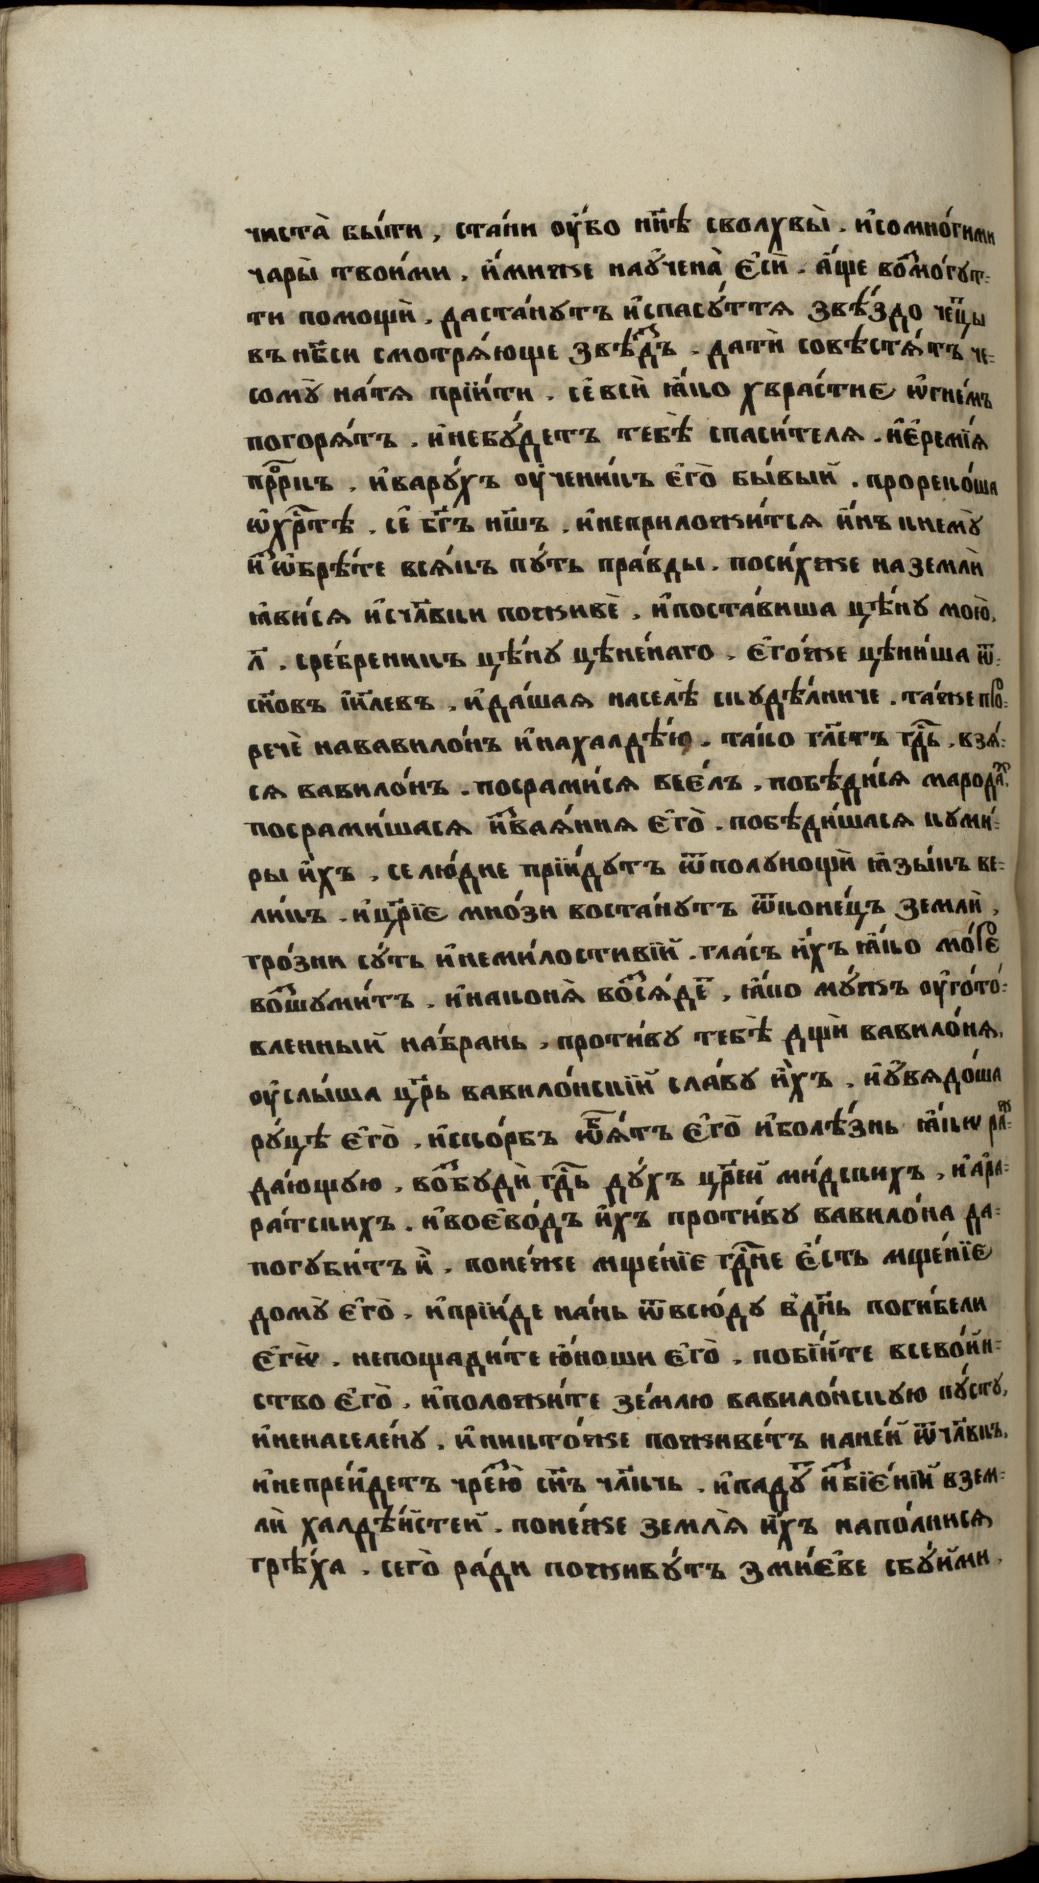 чиста̀ бы́ти, ста́ни ᲂу҆́бо нн҃ѣ сволхвы̀. и҆сомно́гими
чары̀ твои́ми. и҆́миже наꙋ́чена̀ є҆сѝ. а҆́ще во́ꙁмогут-
ти помощѝ. даста́нутъ и҆спасу́ттѧ ꙁвѣ́ꙁдо че҃цы
въ нб҃си смотрѧ́юще ꙁвѣ́ꙁдъ. да́тѝ совѣстѧ́тъ че-
сомꙋ̀ на́тѧ прїи́ти. се́ всѝ ꙗ҆́ко хвра́стиє ѡ҆гне́мъ
погорѧ́тъ. и҆небꙋ́детъ тебѣ̀ спаси́телѧ. и҆є҆реми́ѧ
прⷪ҇ркъ. и҆варꙋ́хъ ᲂу҆ченикъ є҆го̀ бы́вый. прореко́ша
ѡ҆хрⷭ҇тѣ̀. се́ бг҃ъ нш҃ъ. и҆неприложи́тсѧ и҆́нъ кнемꙋ̀
и҆ѡ҆брѣ́те всѧ́къ пꙋ́ть пра́вды. поси́хже на землѝ
ꙗ҆ви́сѧ и҆счл҃вки поживѐ. и҆поста́виша цѣ́ну мою̀.
л҃. сре́бреникъ цѣ́ну цѣне́наго. є҆го́же цѣни́ша ѿ-
сн҃овъ і҆и҃левъ. и҆да́шаѧ населѣ̀ скудѣ́лниче. та́же про-
речѐ нававило́нъ и҆нахалдѣ́ю. та́ко гл҃етъ гд҃ь. вꙁѧ́-
сѧ вавило́нъ. посрами́сѧ всє́лъ. побѣди́сѧ марода́х.
посрами́шасѧ и҆ꙁваѧ́ниѧ є҆го̀. побѣди́шасѧ куми́-
ры и҆́хъ. се лю́дие прїи́дутъ ѿполунощѝ ꙗ҆ꙁы́къ ве-
ли́къ. и҆цр҃їє мно́ꙁи воста́нутъ ѿконе́цъ землѝ,
гро́ꙁни сꙋ́ть и҆неми́лостивїй. гла́съ и҆́хъ ꙗ҆́ко мо́рє
во́ꙁшуми́тъ. и҆наконѧ̀ во́ꙁсѧ́де҃. ꙗ҆́ко мꙋ́жъ ᲂу҆гото́-
вленный на́брань, проти́ву тебѣ̀ дщѝ вавило́нѧ.
ᲂу҆слы́ша цр҃ь вавило́нскїй сла́ву и҆́хъ. и҆ᲂу҆вѧдо́ша
рꙋ́цѣ є҆го̀. и҆ско́рбъ ѡ҆б̾ѧ́тъ є҆го̀ и҆болѣ́ꙁнь ꙗ҆́кѡ ра-
да́ющую. во́ꙁбудѝ гд҃ь дꙋ́хъ цр҃ей ми́дскихъ. и҆ а҆ра-
ра́тскихъ. и҆воє҆во́дъ и҆́хъ проти́ву вавило́на да-
погуби́тъ и҆̀. поне́же мще́нїє гд҃не є҆́сть мще́нїє
домꙋ̀ є҆го̀. и҆прїи́де на́нь ѿвсю́ду в̾дн҃ь поги́бели
є҆гѡ̀. непощади́те ю҆́ноши є҆го̀. поби́йте всево́йн-
ство є҆го̀. и҆положи́те зе́млю вавило́нскую пꙋ́сту,
и҆ненаселе́ну. и҆никто́же поживе́тъ нане́й ѿчл҃вкъ.
и҆непре́йдетъ чре́ꙁꙗ҆̀ сн҃ъ чл҃чь. и҆падꙋ́т и҆ꙁбїє́нїй в зем-
лѝ халдѣ́йстей. поне́же землѧ̀ и҆́хъ напо́лнисѧ
грѣ́ха. сего̀ ра́ди поживꙋ́тъ ꙁмі́єве сбꙋ́йми.